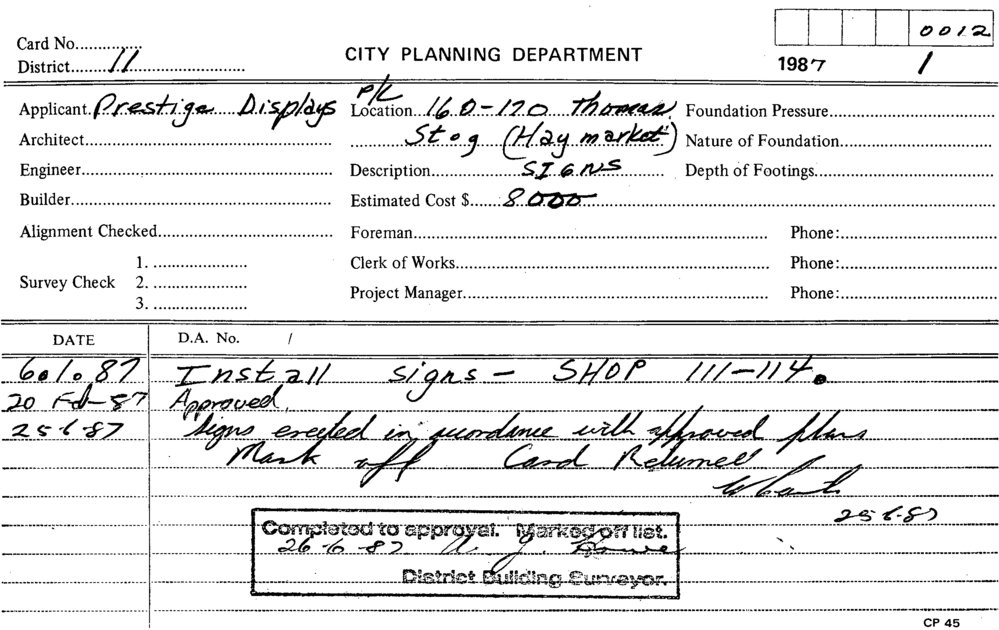 0012
Card No.
District 11
CITY PLANNING DEPARTMENT
1987 1
Applicant Prestige Displays P/L
Location 160-170 Thomas
Foundation Pressure
Architect
St og (Haymarket)
Nature of Foundation
Engineer
Description SIGNS
Depth of Footings
Builder
Estimated Cost $ 8000
Alignment Checked
Foreman
Phone:
Survey Check
1.
2.
3.
Clerk of Works
Phone:
Project Manager
Phone:
DATE
D.A. No. /
6.1.87 Install signs - SHOP 111-114.
20 Feb-87 Approved.
25-6-87 Signs erected in accordance with approved plans
Mark off Card Returned
25-6-87
Completed to approval. Marked off list.
26-6-87
District Building Surveyor.
CP 45